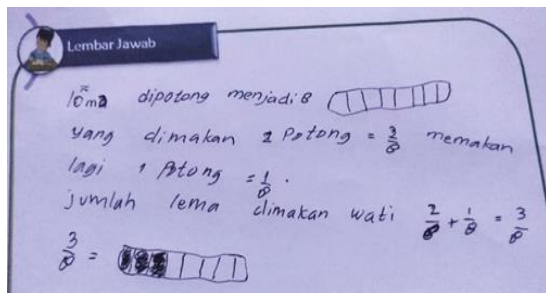 Lembar Jawab
lema dipotong menjadi 8
yang dimakan 2 Potong = 2/8 memakan
lagi 1 Potong = 1/8.
jumlah lema dimakan wati 2/8 + 1/8 = 3/8
3/8 =